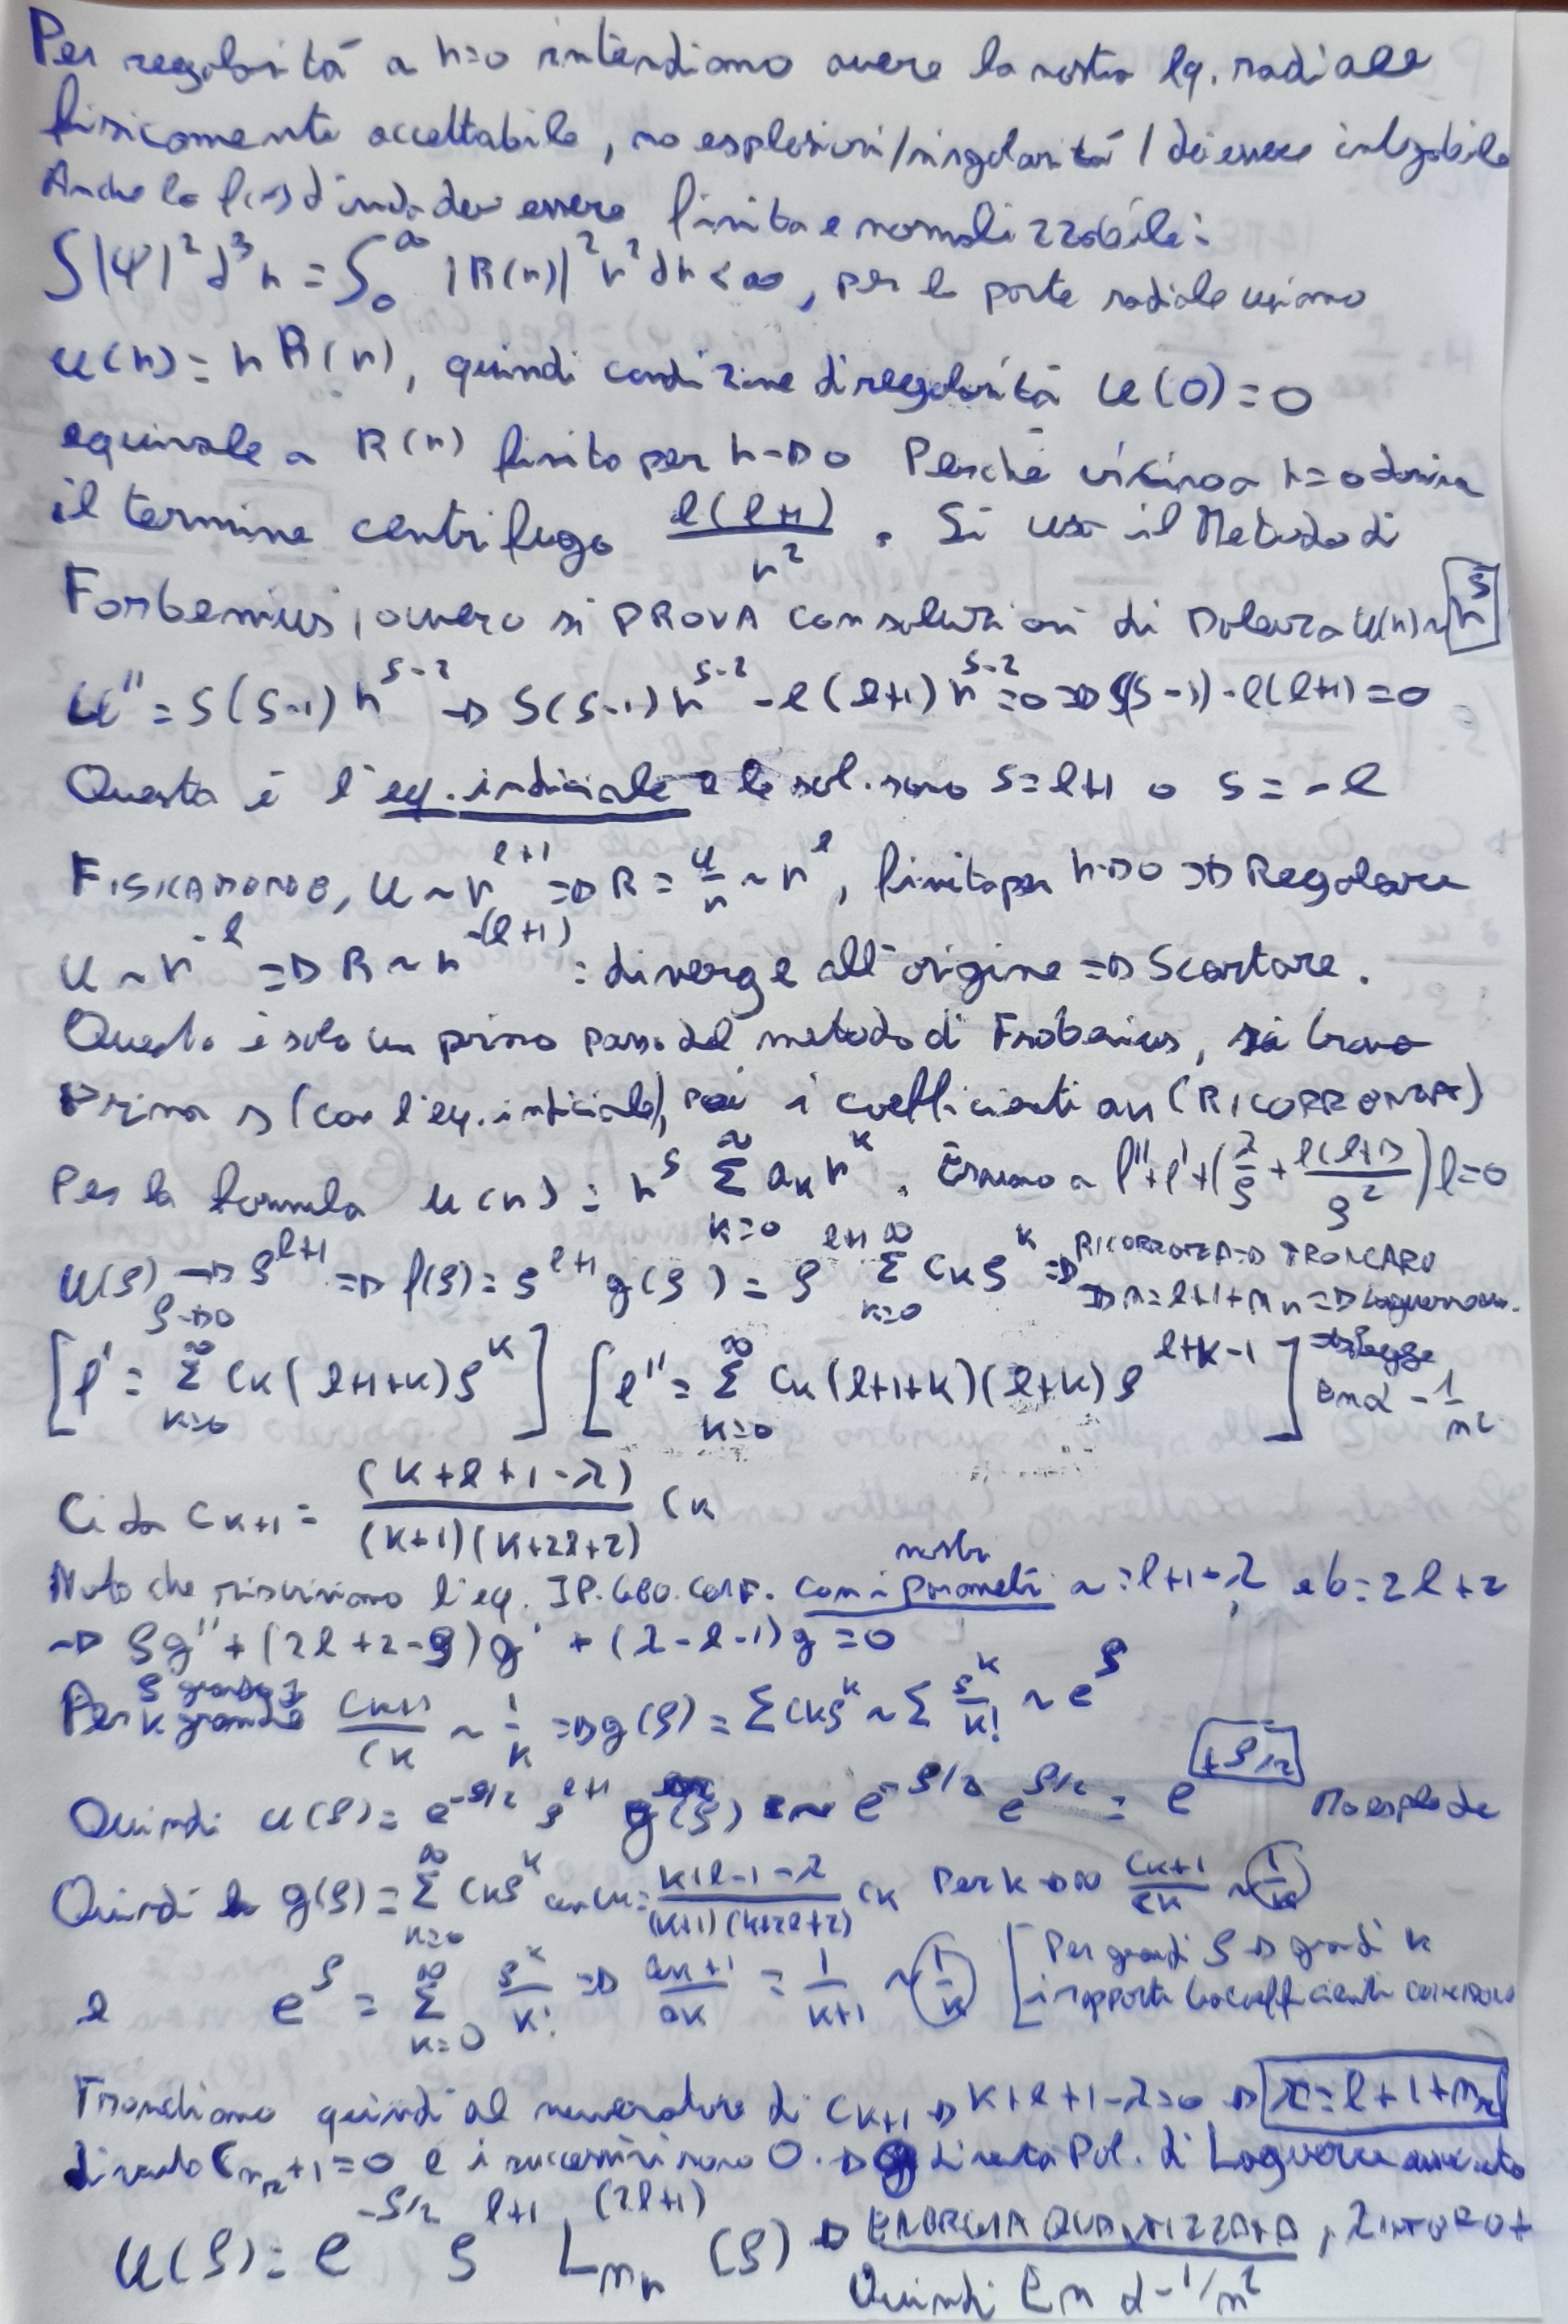 Per regolarità a r=0 intendiamo avere la nostra eq. radiale
fisicamente accettabile, no esplosioni/singolarità / dev'essere integrabile
Anche la f(x) d'onda deve essere finita e normalizzabile:
∫|Ψ|²d³r = ∫₀^∞ |R(r)|²r²dr < ∞, per la parte radiale usiamo
u(r) = r R(r), quindi condizione di regolarità u(0)=0
equivale a R(r) finito per r→0 Perché vicino a r=0 domina
il termine centrifugo l(l+1)/r². Si usa il Metodo di
Forbenius, ovvero si PROVA con soluzioni di potenza u(r)~r^s
u'' = s(s-1)r^{s-2} → s(s-1)r^{s-2} - l(l+1)r^{s-2} = 0 ⇒ s(s-1) - l(l+1) = 0
Questa è l'eq. indiciale e le sol. sono s=l+1 o s=-l
FISICAMENTE, u~r^{l+1} ⇒ R = u/r ~ r^l, finito per r→0 ⇒ Regolare
u~r^{-l} ⇒ R~r^{-(l+1)} : diverge all'origine ⇒ Scartare.
Questo è solo un primo passo del metodo di Frobenius, si trova
Prima s (con l'eq. indiciale), poi i coefficienti an (RICORRENZA)
Per la formula u(r) = r^s ∑_{k=0}^∞ a_k r^k. Eravamo a f''+f'+(λ/ρ + l(l+1)/ρ²)f=0
u(ρ) →_{ρ→0} ρ^{l+1} ⇒ f(ρ) = ρ^{l+1}g(ρ) = ρ^{l+1} ∑_{k=0}^∞ C_k ρ^k ⇒ RICORRENZA ⇒ TRONCARE
⇒ n=l+1+n_r ⇒ Laguerre
[f' = ∑_{k=0}^∞ C_k(l+1+k)ρ^k] [f'' = ∑_{k=0}^∞ C_k(l+1+k)(l+k)ρ^{l+k-1}] ⇒ legge
En α -1/n²
Ci da C_{k+1} = (k+l+1-λ)/((k+1)(k+2l+2)) C_k
Noto che riscriviamo l'eq. IP.GEO.CONF. con i nostri parametri a=l+1-λ e b=2l+2
→ ρg''+(2l+2-ρ)g'+(λ-l-1)g=0
Per ρ grande k grande C_{k+1}/C_k ~ 1/k ⇒ g(ρ) = ∑C_kρ^k ~ ∑ρ^k/k! ~ e^ρ
Quindi u(ρ) = e^{-ρ/2} ρ^{l+1} g(ρ) ~ e^{-ρ/2} e^{ρ/2} = e^{+ρ/2} Ma esplode
Quindi g(ρ) = ∑_{k=0}^∞ C_kρ^k con = (k+l-1-λ)/((k+1)(k+2l+2)) C_k Per k→∞ C_{k+1}/C_k ~ 1/k
e e^ρ = ∑_{k=0}^∞ ρ^k/k! ⇒ a_{k+1}/a_k = 1/(k+1) ~ 1/k [Per grandi ρ → grandi k
i rapporti tra coefficienti coincidono
Tronchiamo quindi al numeratore di C_{k+1} → k+l+1-λ=0 → λ=l+1+n_r
C_{n_r+1}=0 e i successivi sono 0. → g diventa Pol. di Laguerre associato
u(ρ) = e^{-ρ/2} ρ^{l+1} L_{n_r}^{(2l+1)}(ρ) → ENERGIA QUANTIZZATA, λ INTERO +
Quindi En α -1/n²